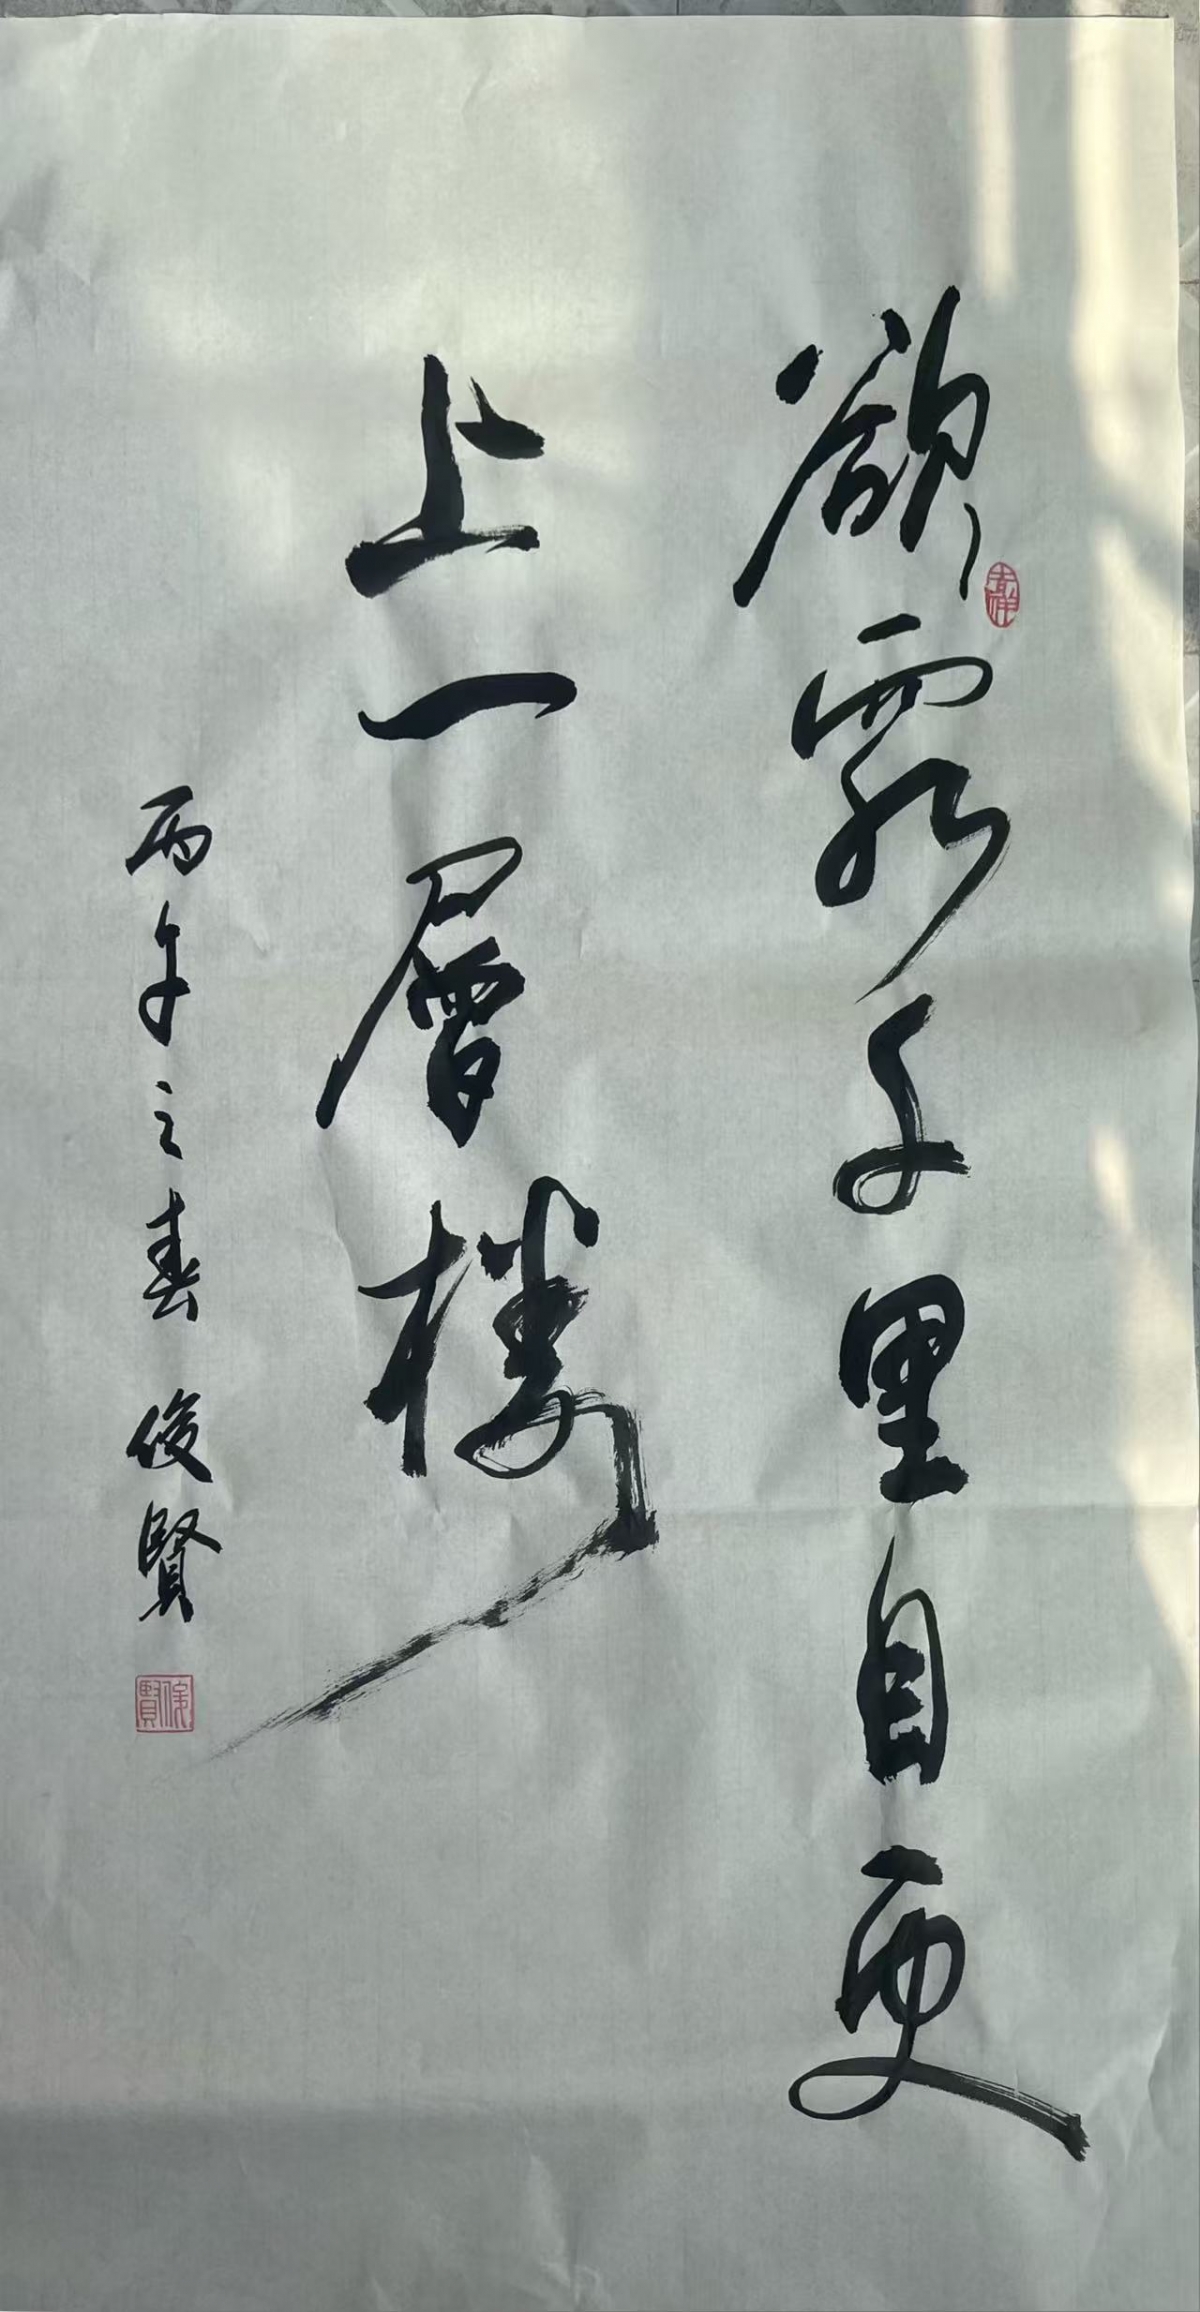 欲窮千里目更
吉祥
上一層樓
丙午之春 俊賢
俊賢